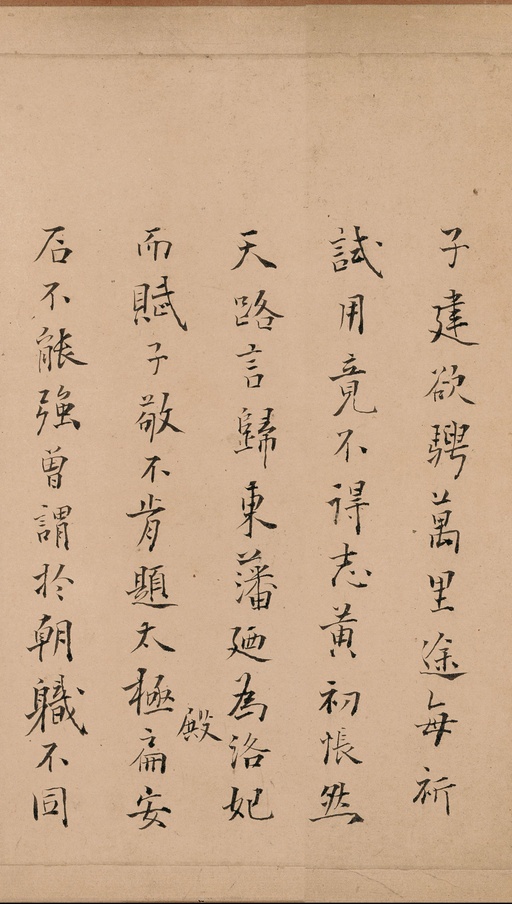 子建欲騁萬里途每祈
試用竟不得志黃初悵然
天路言歸東藩廼為洛妃
而賦子敬不肯題太極殿扁安
石不能強曾謂於朝軄不同